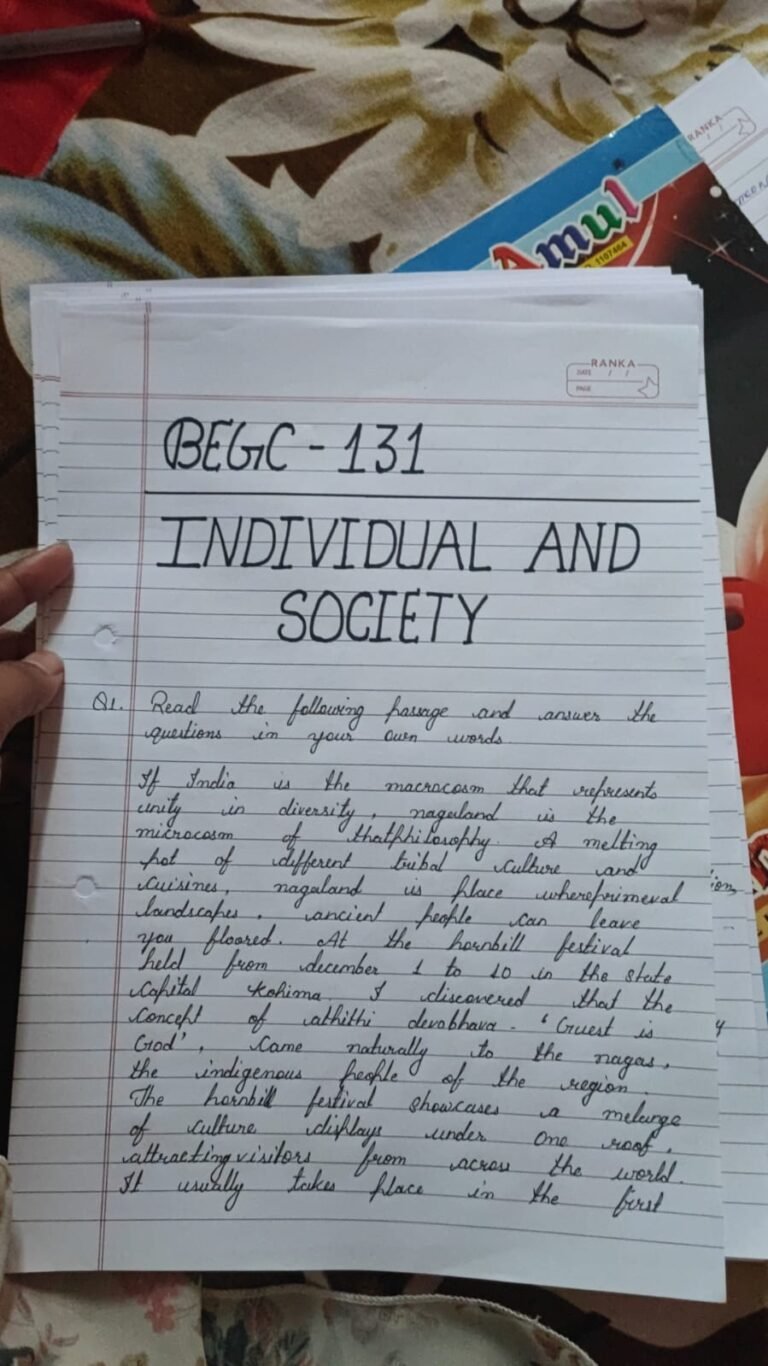 Amul
RANKA
RANKA
DATE / /
PAGE
BEGC - 131
INDIVIDUAL AND
SOCIETY
Q1. Read the following passage and answer the
questions in your own words.
If India is the macrocosm that represents
unity in diversity, nagaland is the
microcosm of thatphilosophy. A melting
pot of different tribal culture and
cuisines, nagaland is place whereprimeval
landscapes, ancient people can leave
you floored. At the hornbill festival
held from december 1 to 10 in the state
capital Kohima. I discovered that the
concept of athithi devobhava - 'Guest is
God', came naturally to the nagas,
the indigenous people of the region.
The hornbill festival showcases a melange
of culture displays under one roof,
attracting visitors from across the world.
It usually takes place in the first